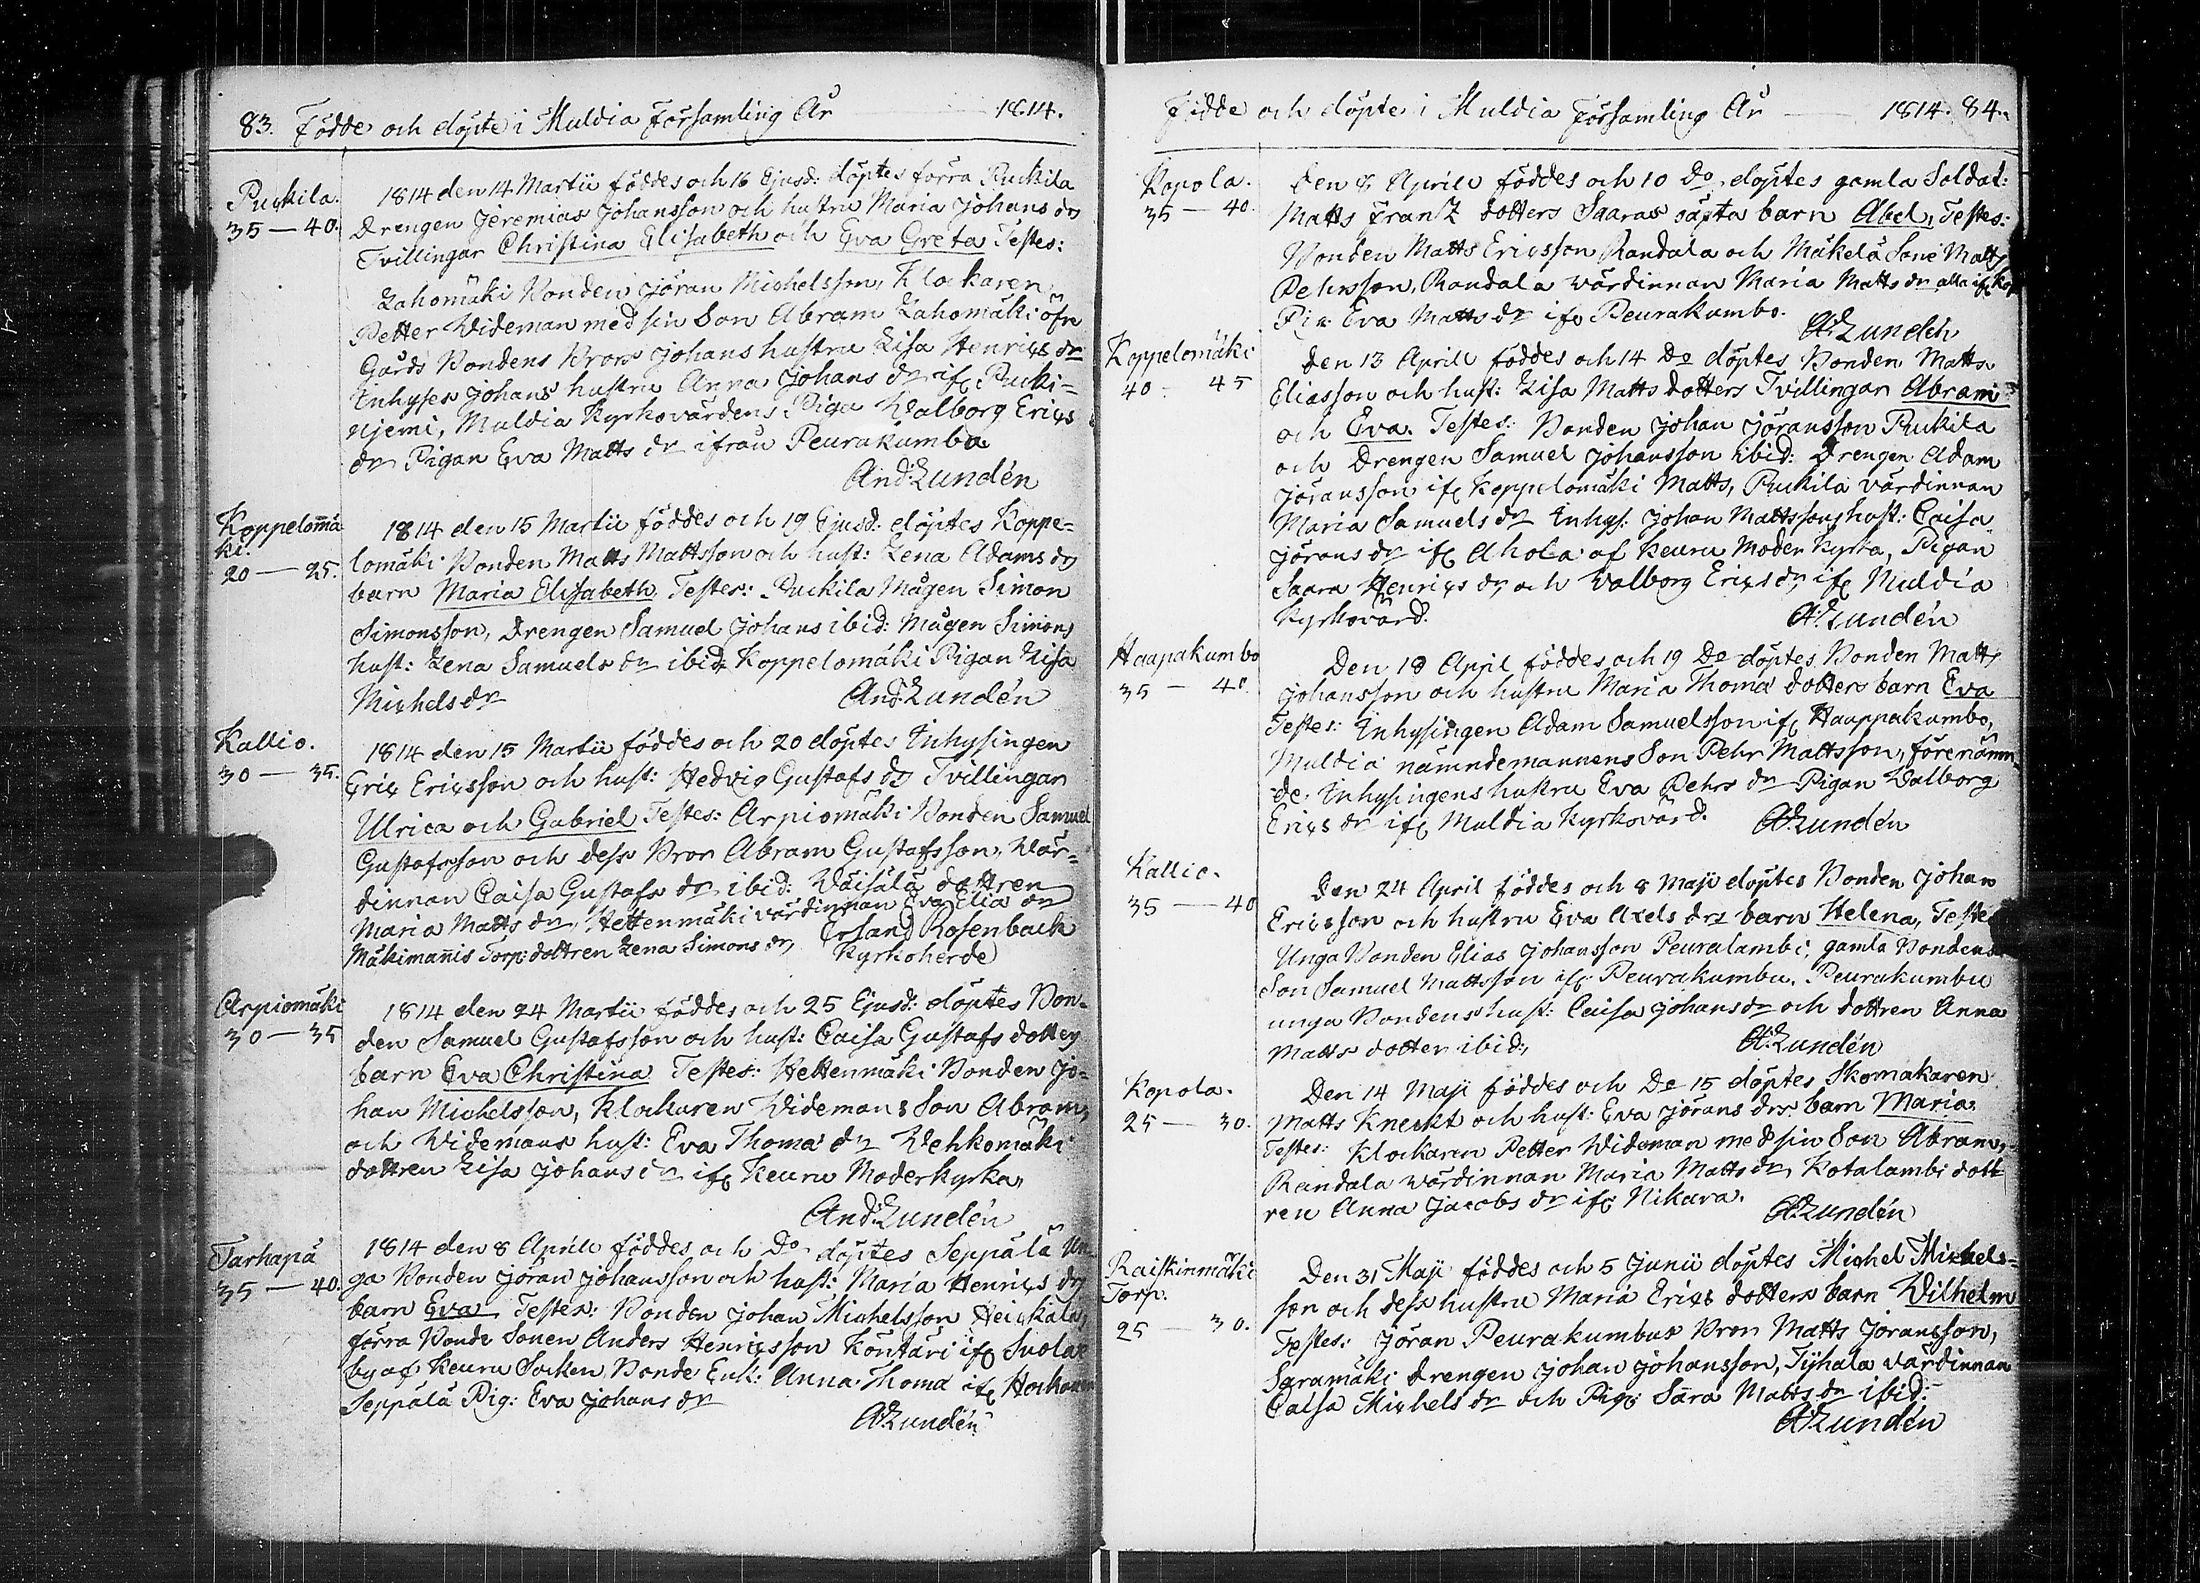 83. Födde och döpte i Muldia Församling År 1814.
Puckila.
35 — 40.
1814 den 14 Martii föddes och 16 Ejusd: döptes förra Puckila
Drengen Jeremias Johansson och hustru Maria Johans dr
Tvillingar Christina Elisabeth och Eva Greta Testes:
Lahomäki Bonden Jöran Michelsson, Klockaren
Petter Wideman med sin Son Abram Lahomäki öfre
Gårds Bondens Bror Johans hustru Lisa Henrics dr
Inhyses Johans hustru Anna Johans dr ifr Pucki-
niemi, Muldia Kyrkovärdens Piga Walborg Erics
dr Pigan Eva Matts dr ifrån Peurakumbu
And: Lundén
Koppelomä
ki.
20 — 25.
1814 den 15 Martii föddes och 19 Ejusd: döptes Koppe-
lomäki Bonden Matts Mattsson och hust: Lena Adams dr
barn Maria Elisabeth Testes: Puckila Mågen Simon
Simonsson, Drengen Samuel Johans ibid: Mågen Simons
hust: Lena Samuels dr ibid: Koppelomäki Pigan Lisa
Michels dr
And: Lundén
Kallio.
30 — 35.
1814 den 15 Martii föddes och 20 döptes Inhysingen
Eric Ericsson och hust: Hedvig Gustafs dr Tvillingar
Ulrica och Gabriel Testes: Arpiomäki Bonden Samuel
Gustafsson och dess Bror Abram Gustafsson, Wär-
dinnan Caisa Gustafs dr ibid: Wäisälä dottren
Maria Matts dr, Hettenmäki värdinnan Eva Elia dr
Mäkimannis Torp: dottren Lena Simons dr, Erland Rosenback
Kyrkoherde
Arpiomäki
30 — 35
1814 den 24 Martii föddes och 25 Ejusd: döptes Bon-
den Samuel Gustafsson och hust: Caisa Gustafs dotters
barn Eva Christina Testes: Hettenmäki Bonden Jo-
han Michelsson, Klockaren Widemans Son Abram,
och Widemans hust: Eva Thoma dr Wehkomäki
dottren Lisa Johans dr ifr Keuru Moderkyrka,
And: Lundén
Tarhapä
35 — 40.
1814 den 8 Aprile föddes och Do döptes Seppälä Un-
ga Bonden Jöran Johansson och hust: Maria Henrics dr
barn Eva Testes: Bonden Johan Michelsson Heickala,
förra Bonde Sonen Anders Henricsson Kontäri ifr
by af Keuru Socken, Bonde Enk: Anna Thoma ifr
Seppälä Pig: Eva Johans dr
A: Lundén
Födde och döpte i Muldia Församling År 1814. 84.
Kopola.
35 — 40.
Den 8 Aprile föddes och 10 Do döptes gamla Soldat:
Matts Frantz dotters Saaras oägta barn Abel, Testes:
Bonden Matts Ericsson Randala och Mäkelä Sone Matts
Pehrsson, Randala wärdinnan Maria Matts dr alla ifr
Pig: Eva Matts dr ifr Peurakumbo.
A: Lundén
Koppelomäki
40 - 45
Den 13 Aprill föddes och 14 Do döptes Bonden Matts
Eliasson och hust: Lisa Matts dotters Tvillingar Abram
och Eva. Testes: Bonden Johan Jöransson Puckila
och Drengen Samuel Johansson ibid: Drengen Adam
Jöransson ifr Koppelomäki Matts, Puckila värdinnan
Maria Samuels dr Inhys: Johan Mattssons hust: Caisa
Jörans dr ifr Ahola af Keuru Moder Kyrka, Pigan
Saara Henrics dr, och Valborg Erics dr, ifr Muldia
Kyrkovärd.
A: Lundén
Haapakumbo
35 — 40.
Den 18 April föddes och 19 Do döptes Bonden Matts
Johansson och hustru Maria Thoma dotters barn Eva
Testes: Inhysingen Adam Samuelsson ifr Haappakumbo,
Muldia nämndemannens Son Pehr Mattsson, förenämn-
de Inhysingens hustru Eva Pehrs dr Pigan Walborg
Erics dr ifr Muldia Kyrkovärd.
A: Lundén
Kallio.
35 — 40
Den 24 April föddes och 8 Maji döptes Bonden Johan
Ericsson och hustru Eva Axels drs barn Helena, Testes
Unga Bonden Elias Johansson Peuralambi, gamla Bondens
Son Samuel Mattsson ifr Peurakumbu. Peurakumbu
unga Bondens hust: Caisa Johans dr och dottren Anna
Matts dotter ibid:,
A: Lundén
Kopola.
25 — 30.
Den 14 Maji föddes och De 15 döptes Skomakaren
Matts Kneckt och hust: Eva Jörans drs barn Maria.
Testes: Klockaren Petter Wideman med sin Son Abram,
Randala wärdinnan Maria Matts dr, Kotalambi dott-
ren Anna Jacobs dr ifr Nikara.
A: Lundén
Raiskinmäki
Torp.
25 — 30.
Den 31 Maji föddes och 5 Junii döptes Michel Michels-
son och dess hustru Maria Erics dotters barn Wilhelm
Testes: Jöran Peurakumbus Bror Matts Jöransson,
Saramäki Drengen Johan Johansson, Tyhala värdinnan
Caisa Michels dr och Pig: Sara Matts dr ibid:
A: Lundén